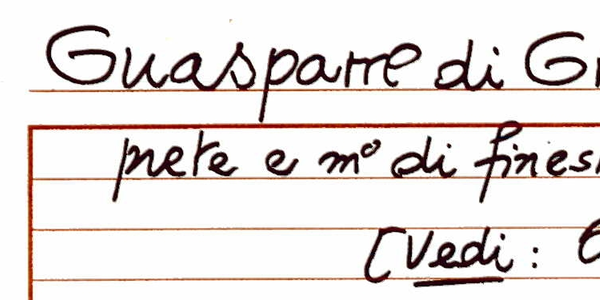 Guasparre di G
prete e mº di fines
[Vedi: